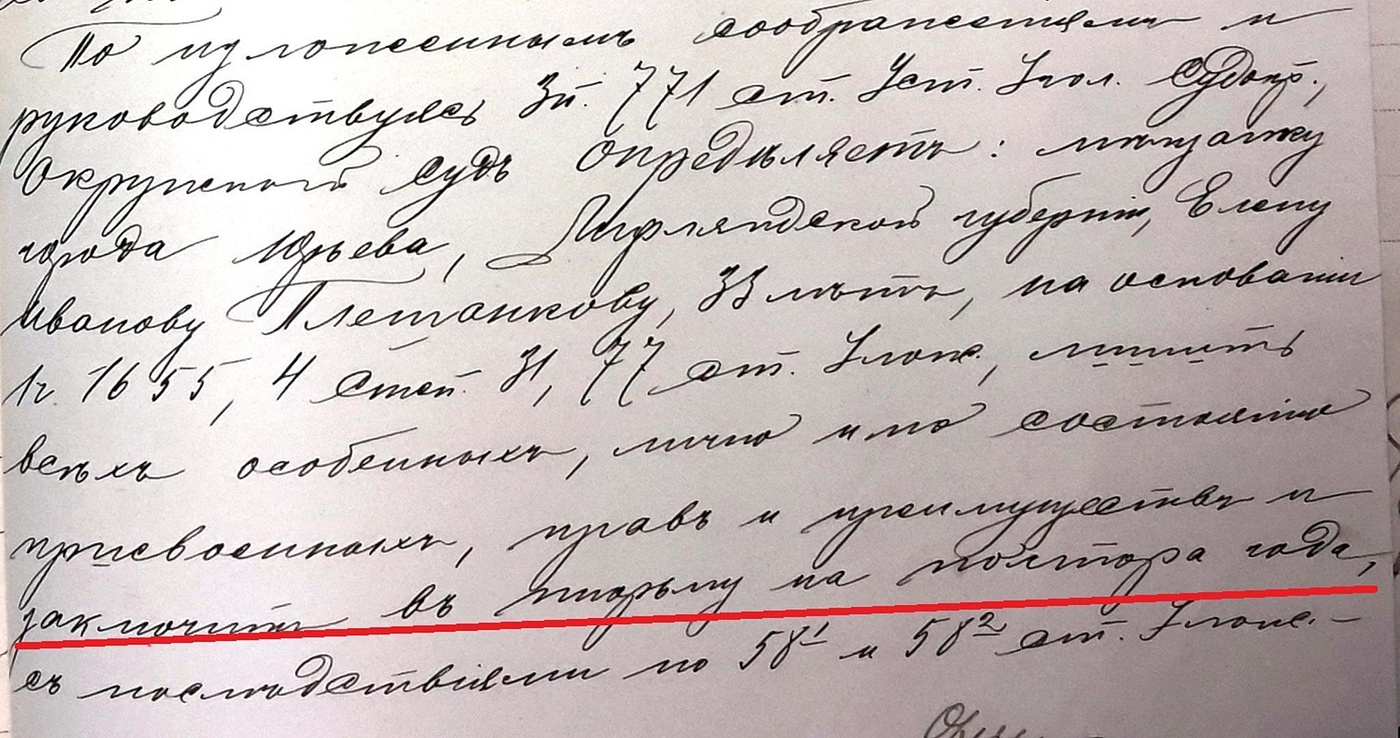 По изложеннымъ соображеніямъ и
руководствуясь 3п. 771 ст. Уст. Угол. Судопр.,
Окружной судъ Опредѣляетъ: мѣщанку
города Юрьева, Лифляндской губерніи, Елену
Иванову Плетанкову, 33 лѣтъ, на основаніи
1ч. 1655, 4 степ. 31, 77 ст. Улож., лишить
всѣхъ особенныхъ, лично и по состоянію
присвоенныхъ, правъ и преимуществъ и
заключить въ тюрьму на полтора года,
съ послѣдствіями по 58¹ и 58² ст. Улож. –